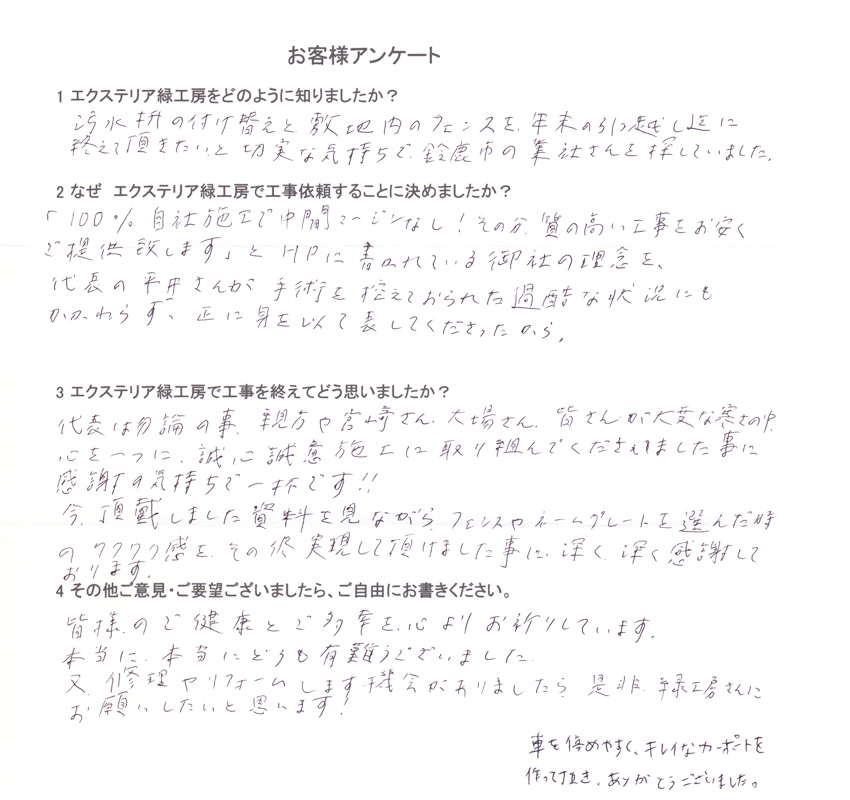 お客様アンケート
1 エクステリア緑工房をどのように知りましたか？
汚水桝の付け替えと敷地内のフェンスを、年末の引っ越し迄に
終えて頂きたいと切実な気持ちで、鈴鹿市の業社さんを探していました。
2 なぜ エクステリア緑工房で工事依頼することに決めましたか？
「100%自社施工で中間マージンなし！その分、質の高い工事をお安く
ご提供致します」とHPに書かれている御社の理念を、
代表の平井さんが手術を控えておられた過酷な状況にも
かかわらず、正に身を以て表してくださったから。
3 エクステリア緑工房で工事を終えてどう思いましたか？
代表は勿論の事、親方や宮崎さん、大場さん、皆さんが大変な寒さの中、
心を一つに、誠心誠意施工に取り組んでくださいました事に
感謝の気持ちで一杯です!!
今、頂戴しました資料を見ながら、フェンスやネームプレートを選んだ時
のワクワク感を、その後実現して頂けました事に、深く、深く感謝して
おります。
4 その他ご意見・ご要望ございましたら、ご自由にお書きください。
皆様のご健康とご多幸を、心よりお祈りしています。
本当に、本当にどうも有難うございました。
又、修理やリフォームします機会がありましたら、是非、緑工房さんに
お願いしたいと思います！
車を停めやすく、キレイなカーポートを
作って頂き、ありがとうございました。